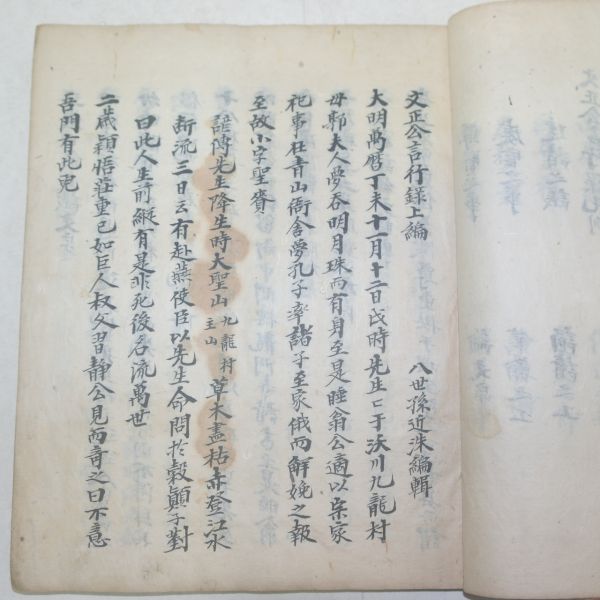 文正公言行錄上編
八世孫近洙編輯
大明萬曆丁未十一月十二日戌時先生亡于沃川九龍村
母郭夫人夢吞明月珠而有身至是睡翁公適以宗家
祀事在青山衙舍夢孔子率諸子至家俄而解娩之報
至故小字聖賚
諺傳先生降生時大聖山九龍村主山草木盡枯赤登江水
斷流三日云有赴燕使臣以先生命問於穀顚子對
曰此人生前縱有是非死後名流萬世
二歲穎悟莊重已如巨人叔父習静公見而奇之曰不意
吾門有此兒